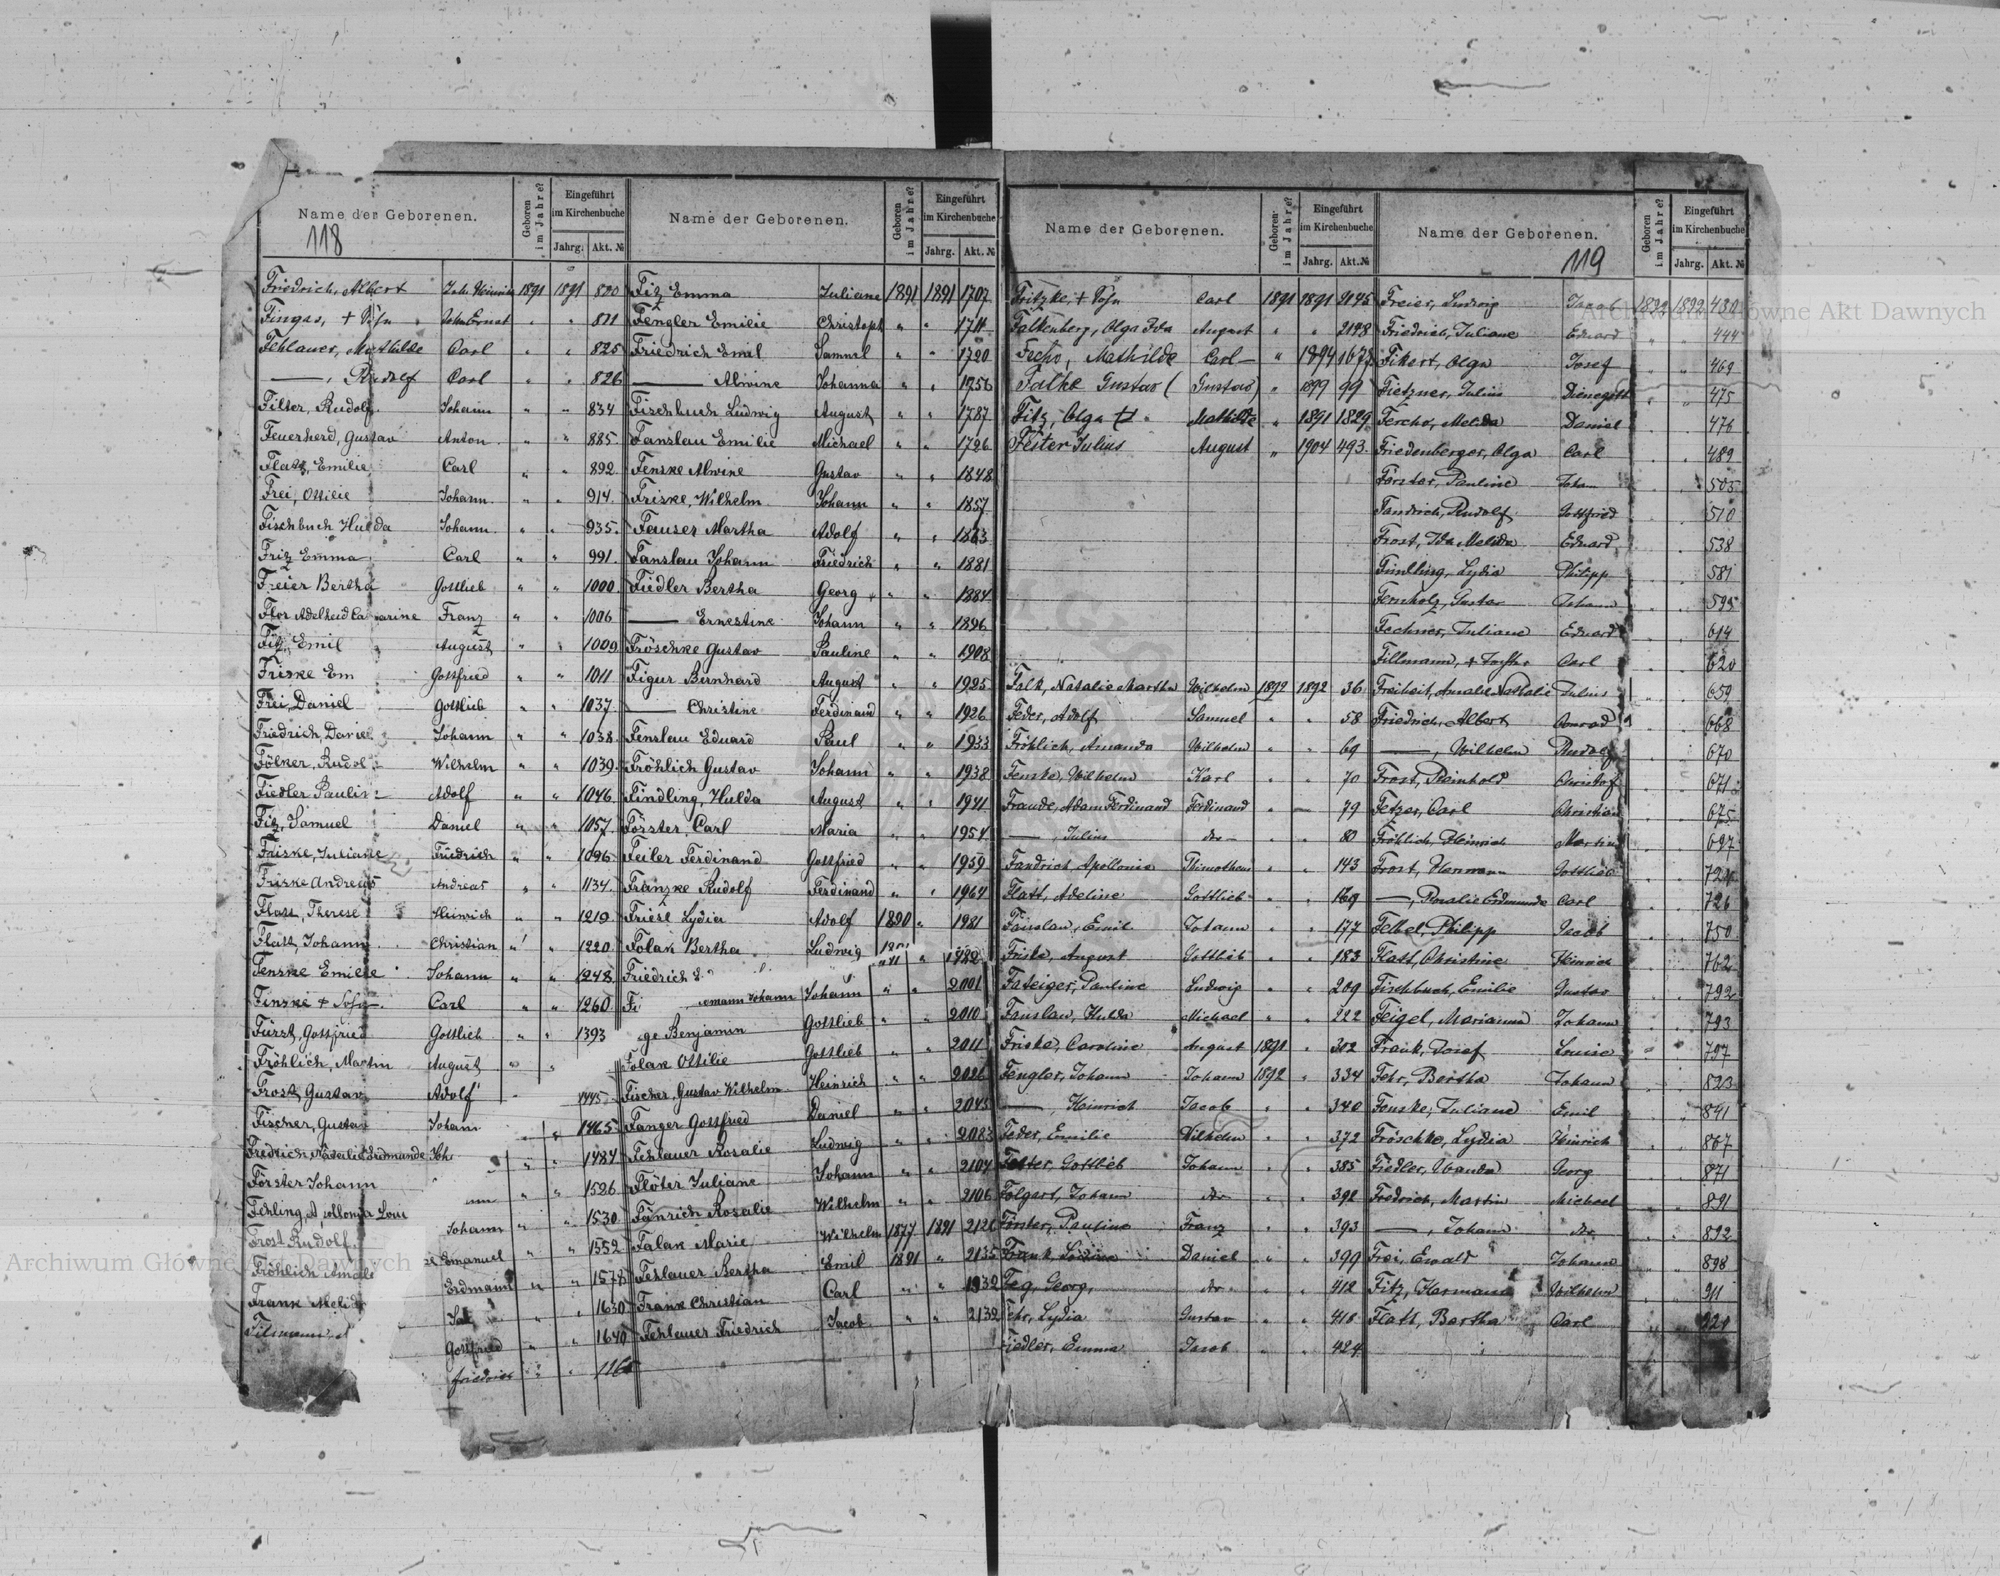 Name der Geborenen.
Geboren im Jahre?
Eingeführt im Kirchenbuche
Jahrg. Akt. №
118
Friedrich, Albert Joh. Heinrich 1891 1891 820
Fingas, + Sohn Joh. Ernst " " 811
Fehlauer, Mathilde Carl " " 825
—, Rudolf Carl " " 826
Filter, Rudolf Johann " " 834
Feuerherd, Gustav Anton " " 885
Flatt, Emilie Carl " " 892
Frei, Ottilie Johann " " 914
Fischbuch Hulda Johann " " 935
Fritz Emma Carl " " 991
Freier Bertha Gottlieb " " 1000
Flor Adelheid Franz " " 1006
Fitz, Emil August " " 1009
Friske Em Gottfried " " 1011
Frei, Daniel Gottlieb " " 1037
Friedrich, Daniel Johann " " 1038
Fölker, Rudol Wilhelm " " 1039
Fiedler Paulin Adolf " " 1046
Fitz, Samuel Daniel " " 1057
Friske, Juliane Friedrich " " 1096
Friske Andreas Andreas " " 1134
Flatt, Therese Heinrich " " 1219
Flatt, Johann Christian " " 1220
Fenske Emilie Johann " " 1248
Finske + Sohn Carl " " 1260
Fürst, Gottfried Gottlieb " " 1393
Fröhlich, Martin August " "
Frost, Gustav Adolf 1445
Fischer, Gustav Johann " 1465
Friedrich Natalie Erdmunde Joh " " 1484
Förster Johann " " 1526
Fehling Johann " " 1530
Frost Rudolf Emanuel " " 1552
Fröhlich Amal Erdmann " "
Frank Meli " " 1630
Tilmann Gottfried " " 1640
Friedrich " "
Name der Geborenen.
Geboren im Jahre?
Eingeführt im Kirchenbuche
Jahrg. Akt. №
Fitz Emma Juliane 1891 1891 1707
Fengler Emilie Christoph " " 1711
Friedrich Emil Samuel " " 1720
— Alwine Johanna " " 1756
Fischbuch Ludwig August " " 1787
Fanslau Emilie Michael " " 1726
Fenske Alwine Gustav " " 1848
Friske, Wilhelm Johann " " 1857
Fauser Martha Adolf " " 1863
Fanslau Johann Friedrich " " 1881
Fiedler Bertha Georg " " 1884
— Ernestine Johann " " 1896
Fröschke Gustav Pauline " " 1908
Figur Bernhard August " " 1925
— Christine Ferdinand " " 1926
Fenslau Eduard Paul " " 1933
Fröhlich Gustav Johann " " 1938
Findling, Hulda August " " 1941
Förster, Carl Maria " " 1954
Feiler Ferdinand Gottfried " " 1959
Franzke Rudolf Ferdinand " " 1964
Friese Lydia Adolf 1890 " 1981
Folak Bertha Ludwig " 1982
Friedrich Johann " " 2001
Gottlieb " " 2010
Benjamin Gottlieb " " 2011
Folak Ottilie Heinrich " " 2026
Fischer, Gustav Wilhelm Daniel " " 2045
Fanger Gottfried Ludwig " " 2083
Fehlauer Rosalie Johann " " 2104
Flöter Juliane Wilhelm " " 2106
Fänrich Rosalie Wilhelm 1877 1891
Falak Marie Emil 1891 " 2135
Fehlauer Bertha Carl " "
Frank Christian Jacob " " 2139
Fehlauer Friedrich
Name der Geborenen.
Geboren im Jahre?
Eingeführt im Kirchenbuche
Jahrg. Akt. №
Fritzke, + Sohn Carl 1891 1891 2175
Falkenberg, Olga Ida August " " 2198
Fecho, Mathilde Carl " 1894 1677
Falke Gustav (Gustav) " 1899 99
Fitz, Olga Mathilde " 1891 1829
Fester Julius August " 1904 493
Falk, Natalie Martha Wilhelm 1892 1892 36
Feder, Adolf Samuel " " 58
Fröhlich, Amanda Wilhelm " " 69
Fenske, Wilhelm Karl " " 70
Fraude, Adam Ferdinand Ferdinand " — 79
—, Julius dto " " 80
Fandrich Apollonia Thimotheus " " 143
Flatt, Adeline Gottlieb " " 169
Fanslau, Emil Johann " " 177
Friske, August Gottlieb " " 183
Fateiger, Pauline Ludwig " " 209
Fanslau, Hulda Michael " " 222
Friske, Caroline August 1891 " 302
Fengler, Johann Johann 1892 " 334
—, Heinrich Jacob " " 340
Feder, Emilie Wilhelm " " 372
Gottlieb Johann " " 385
Folgart, Johann dto " " 392
Förster, Pauline Franz " " 393
Frank, Daniel " " 399
Feg, Georg, dto " " 412
Fehr, Lydia Gustav " " 418
Fiedler, Emma Jacob " " 424
Name der Geborenen.
119
Geboren im Jahre?
Eingeführt im Kirchenbuche
Jahrg. Akt. №
Freier, Ludwig Jacob 1892 1892 430
Friedrich, Juliane Eduard " " 444
Fikert, Olga Josef " " 469
Fietzner, Julius Dienegott " " 475
Fercho, Melida Daniel " " 476
Friedenberger, Olga Carl " " 489
Förster, Pauline Johan " " 505
Fandrich, Rudolf Gottfried " " 510
Frost, Ida Melida Eduard " " 538
Findling, Lydia Philipp " " 581
Fernholz, Gustav Johann " " 595
Fechner, Juliane Eduard " " 614
Fillmann, + Tochter Carl " " 620
Freiheit, Amalie Nathalie Julius " " 659
Friedrich, Albert Konrad " " 668
—, Wilhelm Rudolf " " 670
Frost, Reinhold Christof " " 671
Fetzer, Carl Christian " " 675
Fröhlich, Heinrich Martin " " 697
Frost, Hermann Gottlieb " " 724
—, Rosalie Erdmunde Carl " " 726
Felkel, Philipp Jacob " " 750
Flatt, Christine Heinrich " " 762
Fischbuch, Emilie Gustav " " 792
Feigel, Marianna Johann " " 793
Frank, Josef Louise " " 797
Fehr, Bertha Johann " " 823
Fenske, Juliane Emil " " 841
Fröschke, Lydia Heinrich " " 867
Fiedler, Wanda Georg " " 871
Fredrich, Martin Michael " " 891
—, Johann dto " " 892
Frei, Ewald Johann " " 898
Fitz, Hermann Wilhelm " " 911
Flatt, Bertha Carl " "
Archiwum Główne Akt Dawnych
Archiwum Główne Akt Dawnych